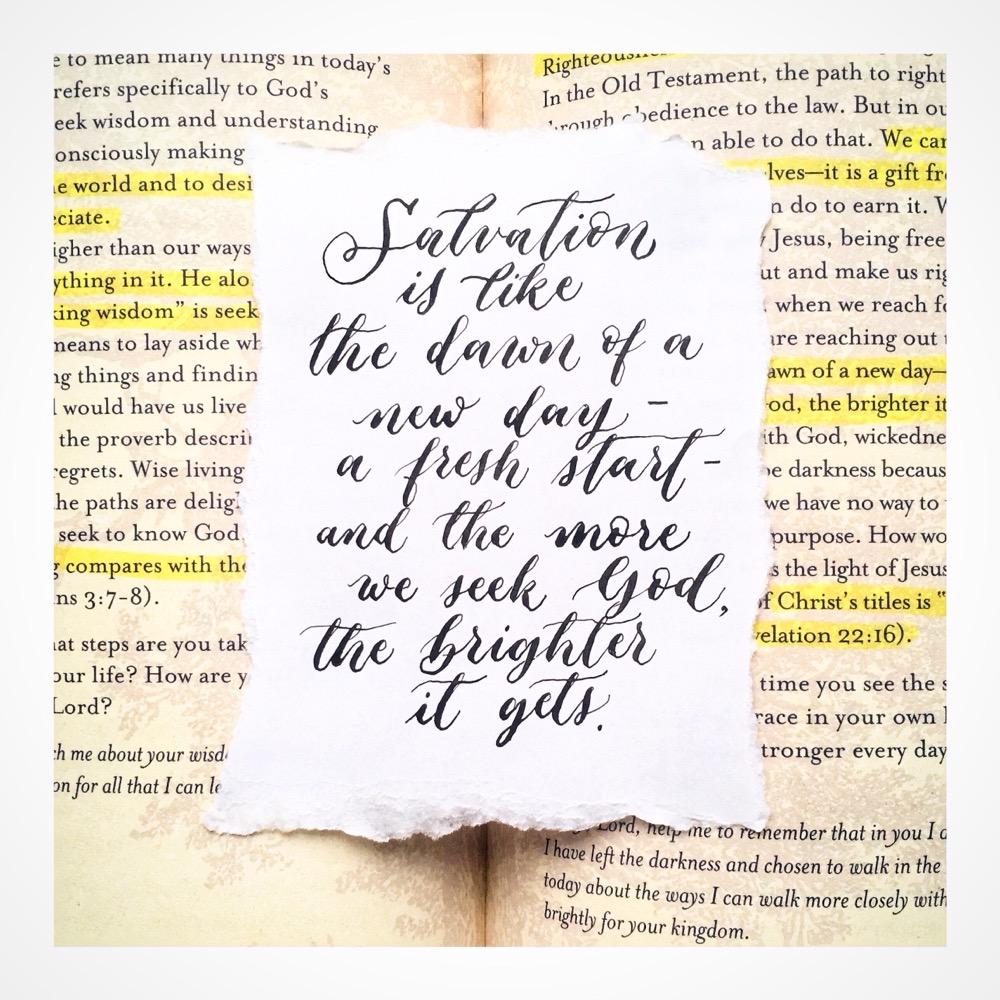 e to mean many things in today's
refers specifically to God's
eek wisdom and understanding
onsciously making
e world and to desi
ciate.
igher than our ways
ything in it. He alo
king wisdom" is seek
means to lay aside wh
ng things and findin
l would have us live
the proverb descri
regrets. Wise living
he paths are deligh
seek to know God,
g compares with the
ns 3:7-8).
at steps are you tak
our life? How are y
Lord?
ch me about your wisd
on for all that I can le
Salvation
is like
the dawn of a
new day -
a fresh start -
and the more
we seek God,
the brighter
it gets.
In the Old Testament, the path to right
hrough obedience to the law. But in ou
n able to do that. We can
lves—it is a gift fr
n do to earn it. W
Jesus, being free
ut and make us rig
when we reach fo
are reaching out
awn of a new day—
od, the brighter it
ith God, wickedne
be darkness becaus
we have no way to
purpose. How wo
s the light of Jesus
f Christ's titles is "
velation 22:16).
time you see the s
race in your own
tronger every day
Lord, help me to remember that in you I a
I have left the darkness and chosen to walk in the
today about the ways I can walk more closely with
brightly for your kingdom.